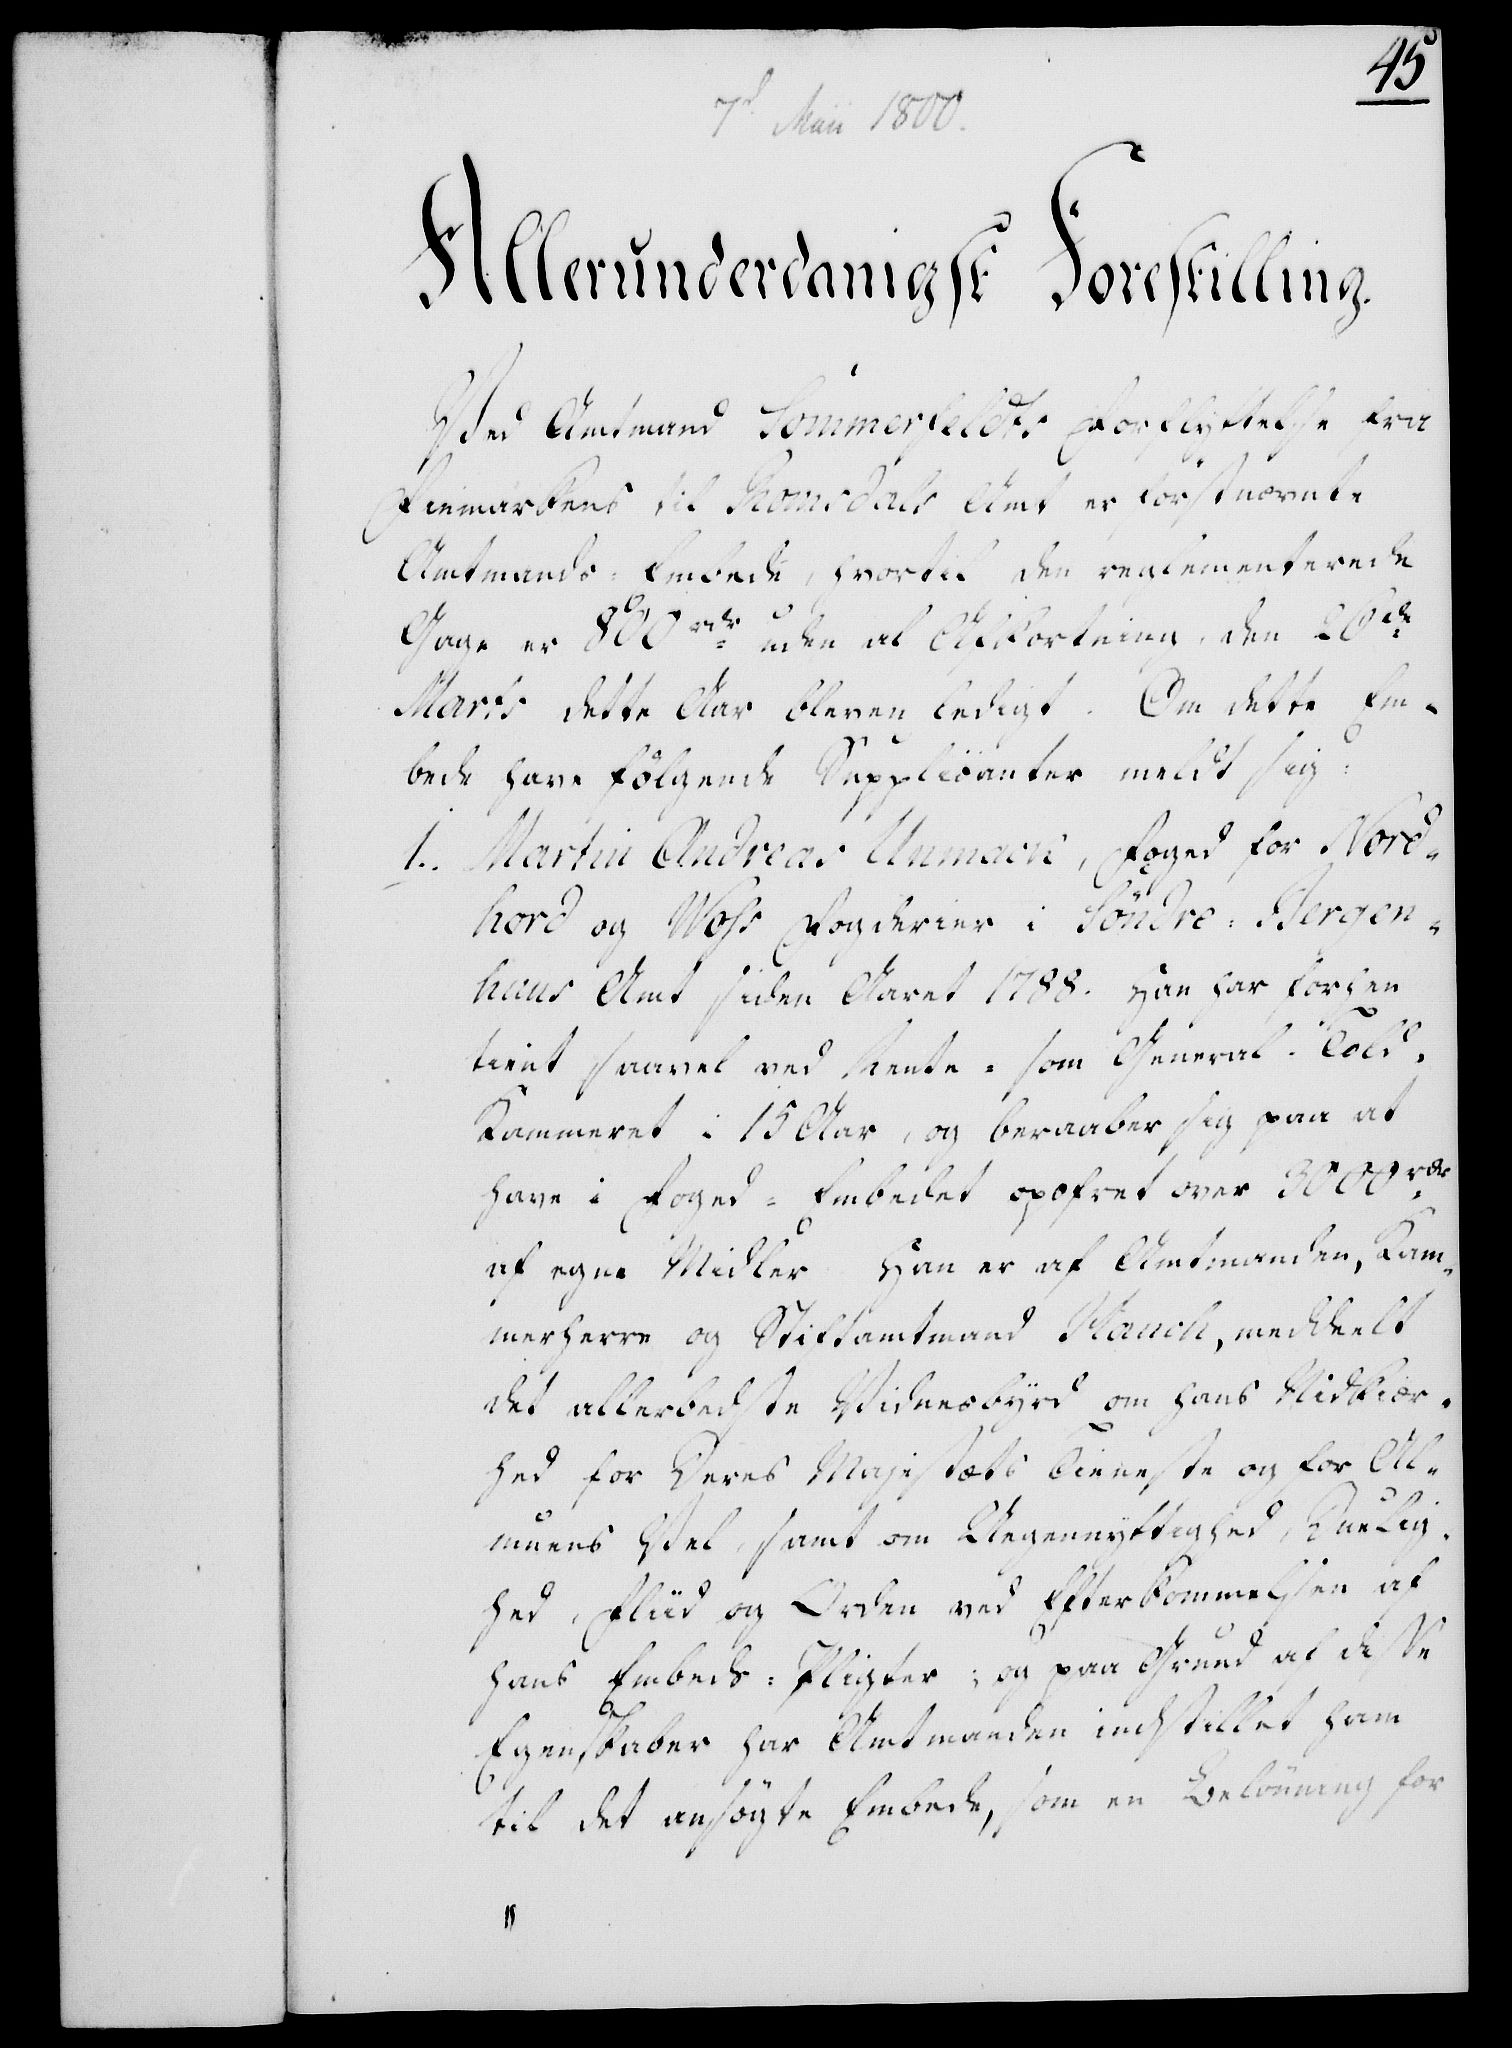 45
7d Maii 1800.
Allerunderdanigst Forestilling.
Ved Amtmand Sommerfeldts Forflyttelse fra
Finmarkens til Romsdals Amt er førstnævnte
Amtmands-Embede, hvortil den reglementerede
Gage er 800 rdr uden al Afkortning, den 26de
Marts dette Aar bleven ledigt. Om dette Em-
bede have følgende Supplicanter meldt sig:
1. Martin Andreas Unmack, Foged for Nord-
hord og Woss Fogderier i Söndre-Bergen-
huus Amt siden Aaret 1788. Han har forhen
tient saavel ved Rente- som General-Told-
Kammeret i 15 Aar, og beraaber sig paa at
have i Foged-Embedet opofret over 3000 rdr
af egne Midler. Han er af Amtmanden, Kam-
merherre og Stiftamtmand Hauch, meddeelt
det allerbedste Vidnesbyrd om hans Nidkiær-
hed for Deres Majestæts Tieneste og for Al-
muens Vel, samt om Uegennyttighed, Duelig-
hed, Fliid og Orden ved Efterkommelsen af
hans Embeds-Pligter; og paa Grund af disse
Egenskaber har Amtmanden indstillet ham
til det ansøgte Embede, som en Belönning for